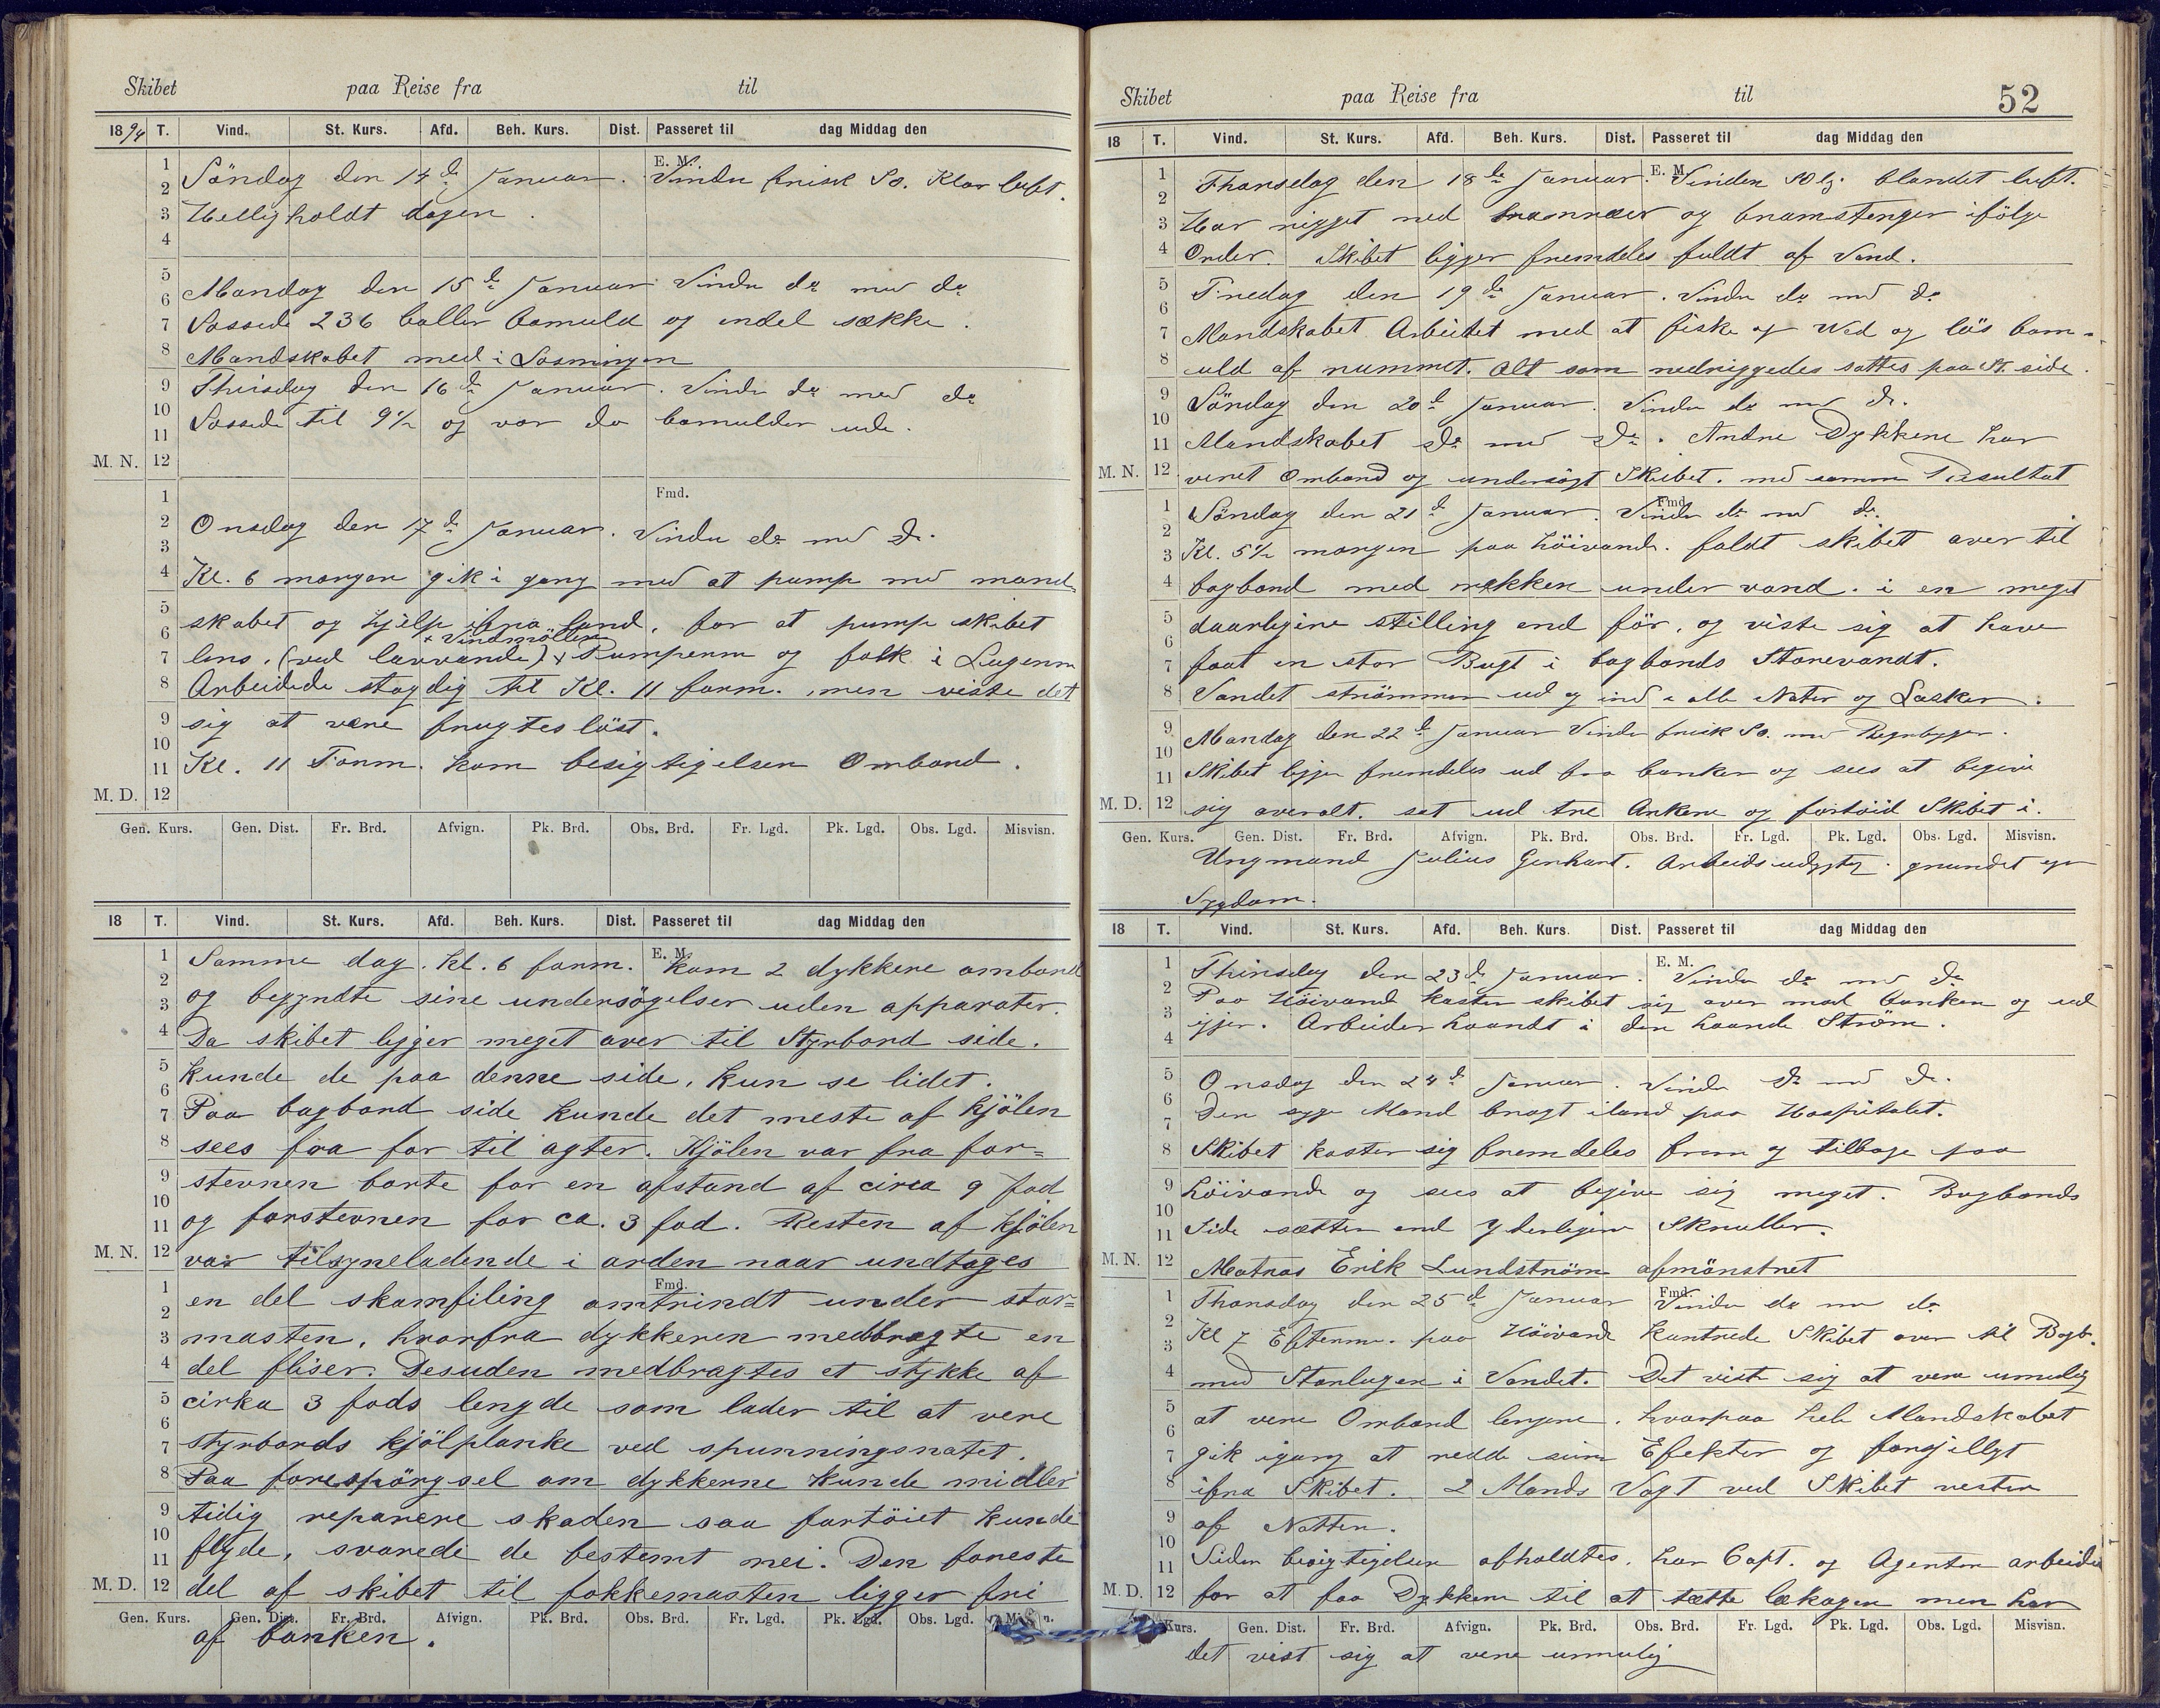 Skibet paa Reise fra til
1894 T. Vind. St. Kurs. Afd. Beh. Kurs. Dist. Passeret til dag Middag den
E. M.
Söndag den 14de Januar. Vinden frisk So. Klar luft.
Helligholdt dagen.
Mandag den 15de Januar Vinden do med do
Lossede 236 baller bomuld og endel sække.
Mandskabet med i Losningen
Thirsdag den 16de Januar. Vinden do med do
Lossede til 9½ og var da bomulden ude.
M. N.
Fmd.
Onsdag den 17de Januar. Vinden do med do.
Kl. 6 morgen gik i gang med at pump med mand
skabet og hjelp ifra land, for at pump skibet
+ Vindmöllen
lens, (ved lavvande) + Pumperne og folk i Lugerne
Arbeidede stagdig til Kl. 11 form. men viste det
sig at være frugteslöst.
Kl. 11 Form. kom besigtigelsen Ombord.
M. D.
Gen. Kurs. Gen. Dist. Fr. Brd. Afvign. Pk. Brd. Obs. Brd. Fr. Lgd. Pk. Lgd. Obs. Lgd. Misvisn.
18 T. Vind. St. Kurs. Afd. Beh. Kurs. Dist. Passeret til dag Middag den
E. M.
Samme dag. Kl. 6 form. kom 2 dykkere ombord
og begyndte sine undersögelser uden apparater.
Da skibet ligger meget over til Styrbord side.
kunde de paa denne side, kun se lidet.
Paa bagbord side kunde det meste af kjölen
sees fra for til agter. Kjölen var fra for=
stevnen borte for en afstand af circa 9 fod
og forstevnen for ca. 3 fod. Resten af kjölen
M. N. var tilsyneladende i orden naar undtages
Fmd.
en del skamfiling omtrindt under stor=
masten, hvorfra dykkeren medbragte en
del fliser. Desuden medbragtes et stykke af
cirka 3 fods lengde som lader til at vere
styrbords kjölplanke ved spunningsnatet.
Paa forespörgsel om dykkerne kunde midler
tidig reparere skaden saa fartöiet kunde
flyde, svarede de bestemt nei. Den foreste
M. D. del af skibet til fokkemasten ligger fri
Gen. Kurs. Gen. Dist. Fr. Brd. Afvign. Pk. Brd. Obs. Brd. Fr. Lgd. Pk. Lgd. Obs. Lgd.
af banken.
Skibet paa Reise fra til 52
18 T. Vind. St. Kurs. Afd. Beh. Kurs. Dist. Passeret til dag Middag den
E. M.
Thorsdag den 18de Januar. Vinden blandet luft.
Har rigget ned bramræer og bramstenger ifölge
Order. Skibet ligger fremdeles fuldt af Vand.
Fredag den 19de Januar. Vinden do med do
Mandskabet Arbeidet med at fiske op Ved og lös bom-
uld af rummet. Alt som nedriggedes sattes paa St. side.
Söndag den 20de Januar. Vinden do med do.
Mandskabet do med do. Andre Dykkere har
M. N. veret Ombord og undersögt Skibet. med samme Resultat
Fmd.
Söndag den 21de Januar. Vinden do med do.
Kl. 5½ morgen paa höivande. faldt skibet over til
bagbord med rekken under vand. i en meget
daarligere stilling end för, og viste sig at have
faat en stor Bugt i bagbords Storevandt.
Vandet strömmer ud og ind i alle Nater og Lasker.
Mandag den 22de Januar Vinden frisk So. med Regnbyger.
Skibet ligger fremdeles ud fra banken og sees at begive
M. D. sig overalt. sat ud tre Ankere og fortöid Skibet i.
Gen. Kurs. Gen. Dist. Fr. Brd. Afvign. Pk. Brd. Obs. Brd. Fr. Lgd. Pk. Lgd. Obs. Lgd. Misvisn.
Ungmand Julius Gerhart. Arbeidsudygtig. grundet
Sygdom.
18 T. Vind. St. Kurs. Afd. Beh. Kurs. Dist. Passeret til dag Middag den
E. M.
Thirsdag den 23de Januar. Vinden do med do
Paa Höivand kaster skibet sig over mod banken og ud
igjer. Arbeider haardt i den haarde Ström.
Onsdag den 24de Januar. Vinden do med do.
Den syge Mand bragt iland paa Hospitalet.
Skibet kaster sig fremdeles frem og tilbage paa
höivande og sees at begive sig meget. Bagbords
Side sætter end yderligere Skruller.
M. N. Matros Erik Lundström afmönstret
Fmd.
Thorsdag den 25de Januar Vinden do med do
Kl 7 Efterm. paa Höivande kantrede Skibet over til Bagb.
med Storlugen i Vandet. Det viste sig at vere umulig
at vere Ombord lengere. hvorpaa hele Mandskabet
gik igang at redde sine Efekter og forsjelligt
ifra Skibet. 2 Mands Vagt ved Skibet resten
af Natten.
Siden besigtigelsen afholdtes. har Capt. og Agenten arbeidet
M. D. for at faa Dykkere til at tætte lækagen men har
Kurs. Gen. Dist. Fr. Brd. Afvign. Pk. Brd. Obs. Brd. Fr. Lgd. Pk. Lgd. Obs. Lgd. Misvisn.
det vist sig at vere umulig